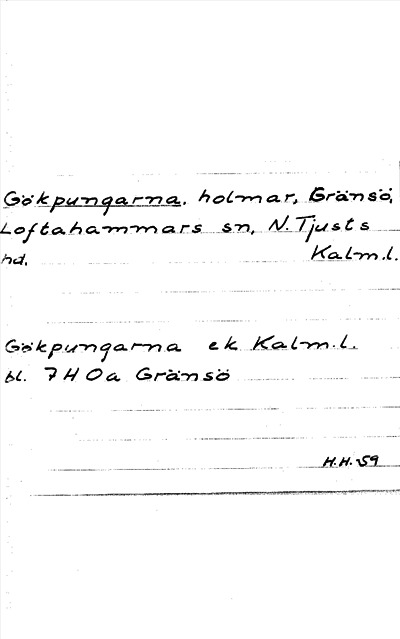 Gökpungarna, holmar, Gränsö,
Loftahammars sn, N. Tjusts
hd. Kalm.l.
Gökpungarna ek Kalm.l.
bl. 7H0a Gränsö
H.H. -59